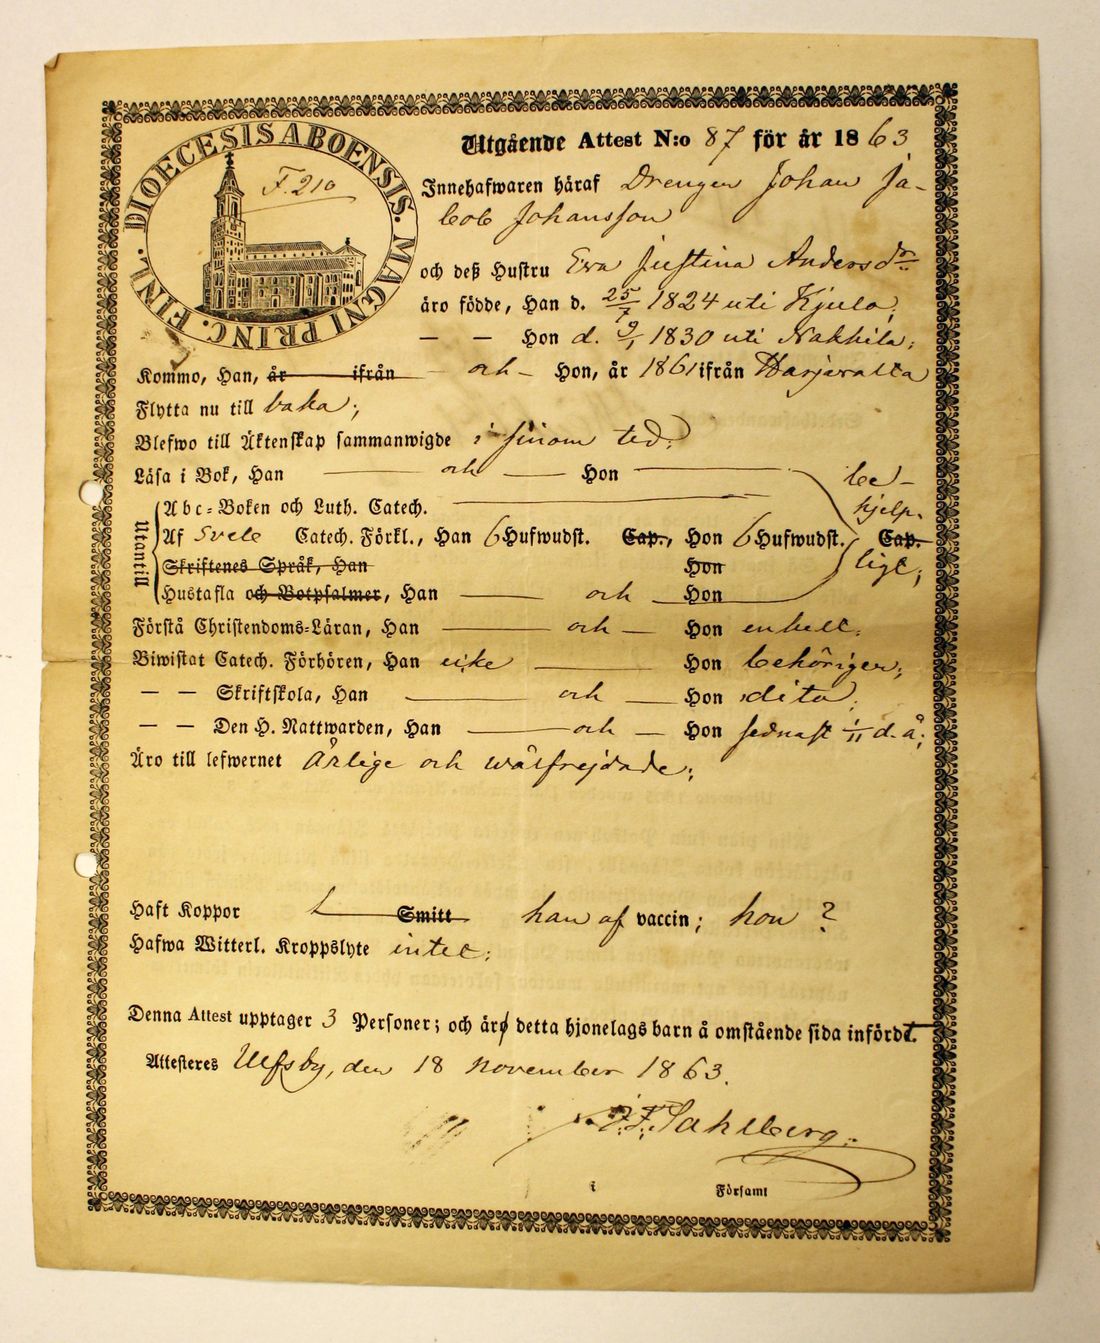 DIOECESIS ABOENSIS. MAGNI PRINC. FINL.
F. 210
Utgående Attest N:o 87 för år 1863
Innehafwaren häraf Drengen Johan Ja-
cob Johansson
och deß Hustru Eva Justina Andersdr
äro födde, Han d. 25/7 1824 uti Kjulo,
— — Hon d. 9/1 1830 uti Nakkila;
Kommo, Han, år ifrån - och - Hon, år 1861 ifrån Harjavalta
Flytta nu till baka;
Blefwo till Äktenskap sammanwigde i sinom tid;
Läsa i Bok, Han — och — Hon — be-
Utantill
Abc-Boken och Luth. Catech. — hjelp-
Af Svebe Catech. Förkl., Han 6 Hufwudst. Cap., Hon 6 Hufwudst. Cap.
Skriftenes Språk, Han Hon ligt;
Hustafla och Botpsalmer, Han — och — Hon
Förstå Christendoms-Läran, Han — och — Hon enkelt;
Biwistat Catech. Förhören, Han icke — Hon behörigen;
— — Skriftskola, Han — och — Hon dito;
— — Den H. Nattwarden, Han — och — Hon sednast 1/11 d. å;
Äro till lefwernet Ärlige och wälfrejdade;
Haft Koppor — Smitt han af vaccin; hon ?
Hafwa Witterl. Kroppslyte intet;
Denna Attest upptager 3 Personer; och äro detta hjonelags barn å omstående sida infördt.
Attesteres Ulfsby, den 18 november 1863.
F. Sahlberg.
i Församl